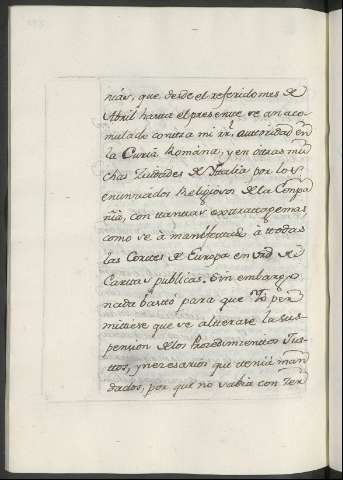 ncias, que desde el referido mes de
Abril hasta el presente se an aco-
mulado contra mi rl. autoridad en
la Curia Romana, y en otras mu-
chas Ciudades de Ytalia por los
enunciados Religiosos de la Compa
nia, con tantas extratagemas
como se à manifestado à todas
las Cortes de Europa en vrd de
Cartas publicas. Sin embargo
nada bastó para que Yo per
mitiese que se alterase la sus
pension de los Procedimientos Jus-
tos, y necesarios que tenia man
dados, por que no sabia con zer